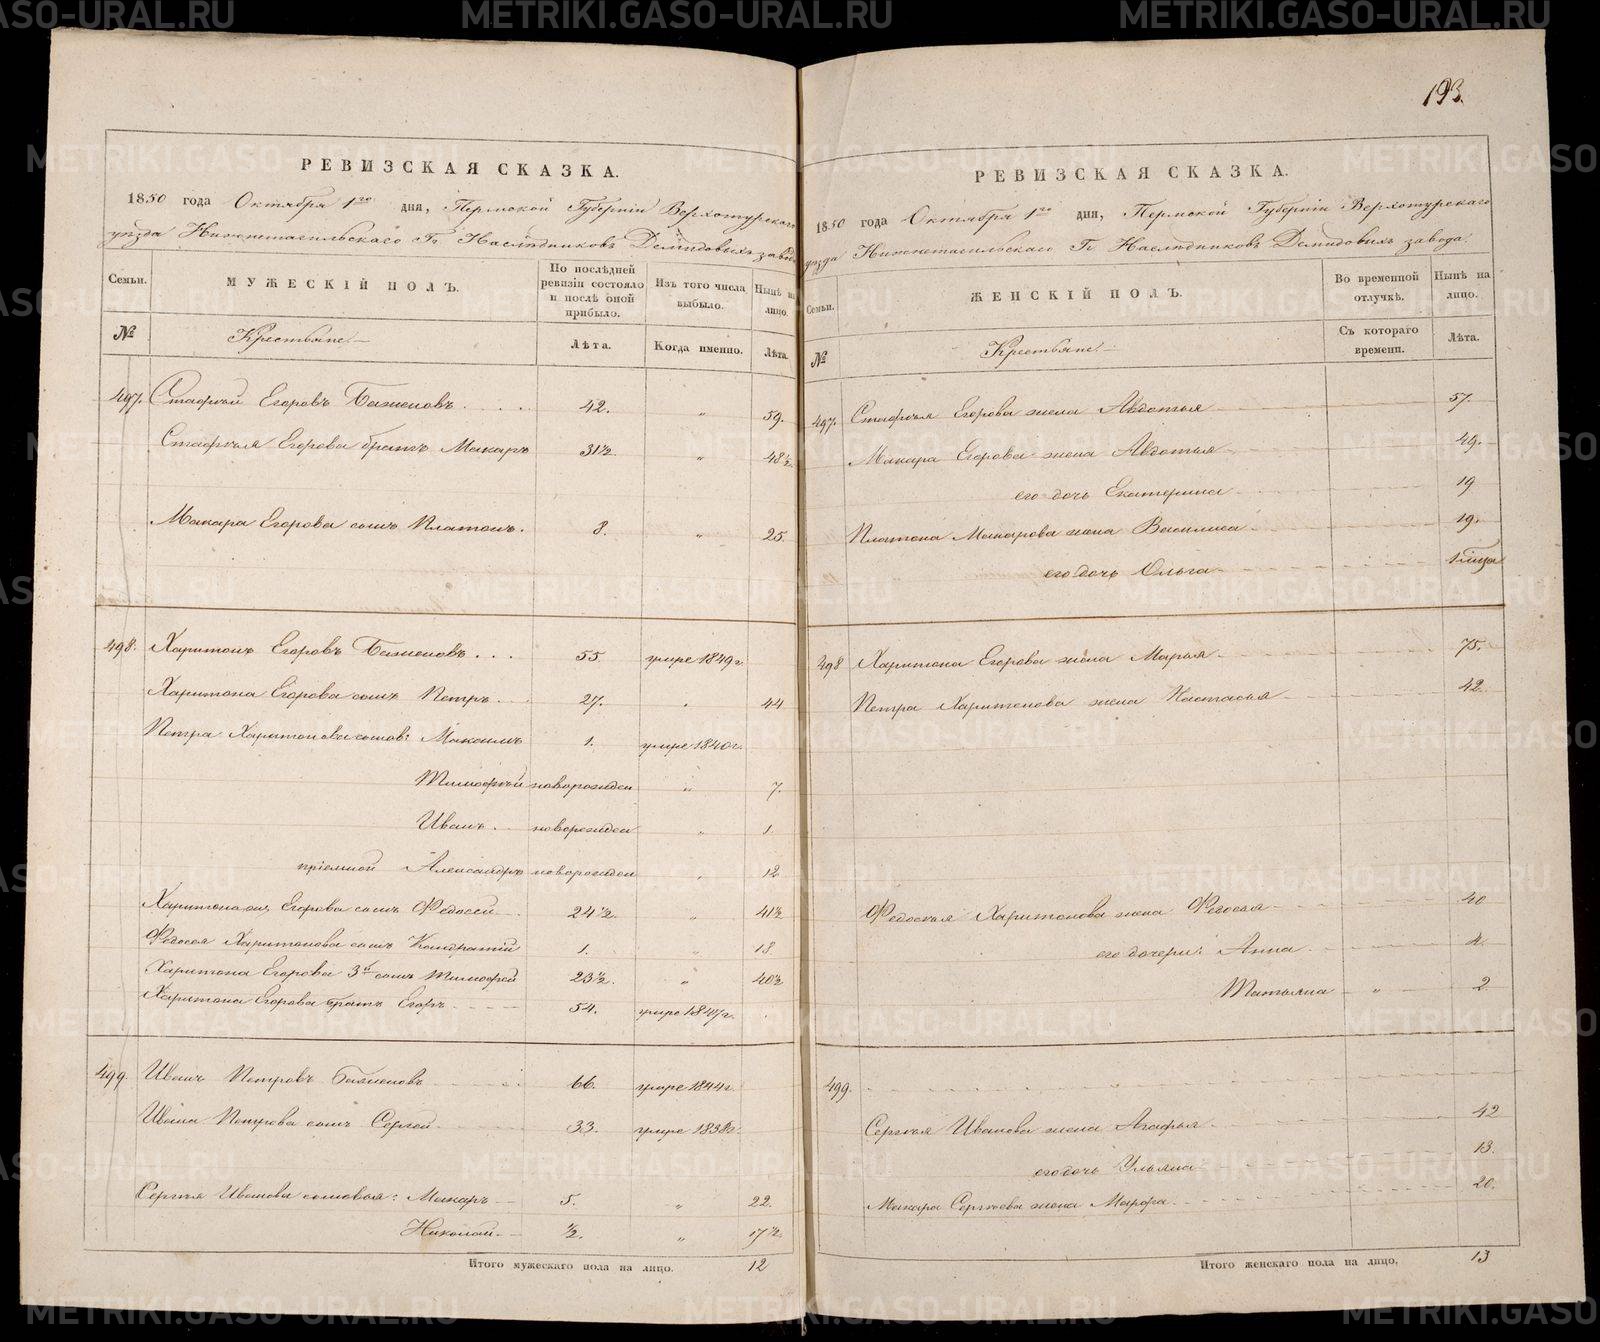 193.
РЕВИЗСКАЯ СКАЗКА.
1850 года Октября 1го дня, Пермской Губерніи Верхотурскаго
уѣзда Нижнетагильскаго Гг Наслѣдниковъ Демидовыхъ завода
Семьи. МУЖЕСКІЙ ПОЛЪ. По послѣдней ревизіи состояло и послѣ оной прибыло. Изъ того числа выбыло. Нынѣ на лицо.
№ Крестьяне Лѣта. Когда именно. Лѣта.
497. Стафѣй Егоровъ Баженовъ 42. " 59.
Стафѣя Егорова братъ Макаръ 31½ " 48½.
Макара Егорова сынъ Платонъ. 8. " 25.
498. Харитонъ Егоровъ Баженовъ 55. умре 1849 г.
Харитона Егорова сынъ Петръ 27. " 44
Петра Харитонова сыновья: Максимъ 1. умре 1840 г.
Тимофѣй новорожден " 7.
Иванъ новорожден " 1.
пріемной Александръ новорожден " 12
Харитона Егорова сынъ Федосей 24½. " 41½
Федосея Харитонова сынъ Кондратій 1. " 18.
Харитона Егорова 3й сынъ Тимофей 23½. " 40½
Харитона Егорова братъ Егоръ 54. умре 1847 г.
499. Иванъ Петровъ Баженовъ 66. умре 1844 г.
Ивана Петрова сынъ Сергей 33. умре 1838 г.
Сергѣя Иванова сыновья: Макаръ 5. " 22.
Николай ½. " 17½.
Итого мужескаго пола на лицо. 12
РЕВИЗСКАЯ СКАЗКА.
1850 года Октября 1го дня, Пермской Губерніи Верхотурскаго
уѣзда Нижнетагильскаго Гг Наслѣдниковъ Демидовыхъ завода.
Семьи. ЖЕНСКІЙ ПОЛЪ. Во временной отлучкѣ. Нынѣ на лицо.
№ Крестьяне Съ котораго времени. Лѣта.
497. Стафѣя Егорова жена Авдотья 57.
Макара Егорова жена Авдотья 49.
его дочь Екатерина 19
Платона Макарова жена Василиса 19.
его дочь Ольга
498 Харитона Егорова жена Марья 75.
Петра Харитонова жена Настасья 42.
Федосѣя Харитонова жена Федосья 40
его дочери: Анна 4.
Татьяна " 2
499.
Сергѣя Иванова жена Агафья 42
его дочь Ульяна 13.
Макара Сергѣева жена Марфа 20.
Итого женскаго пола на лицо. 13
METRIKI.GASO-URAL.RU